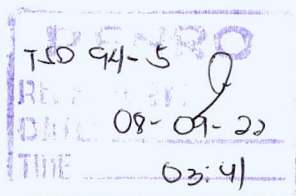 PENRO
TSD 94-5
RE
DATE 08-09-22
TIME 03:41